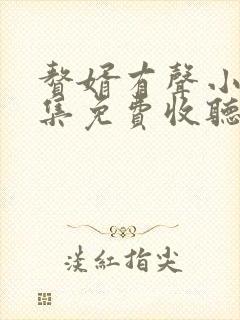 贅婿有聲小
集免費收聽
淡紅指尖